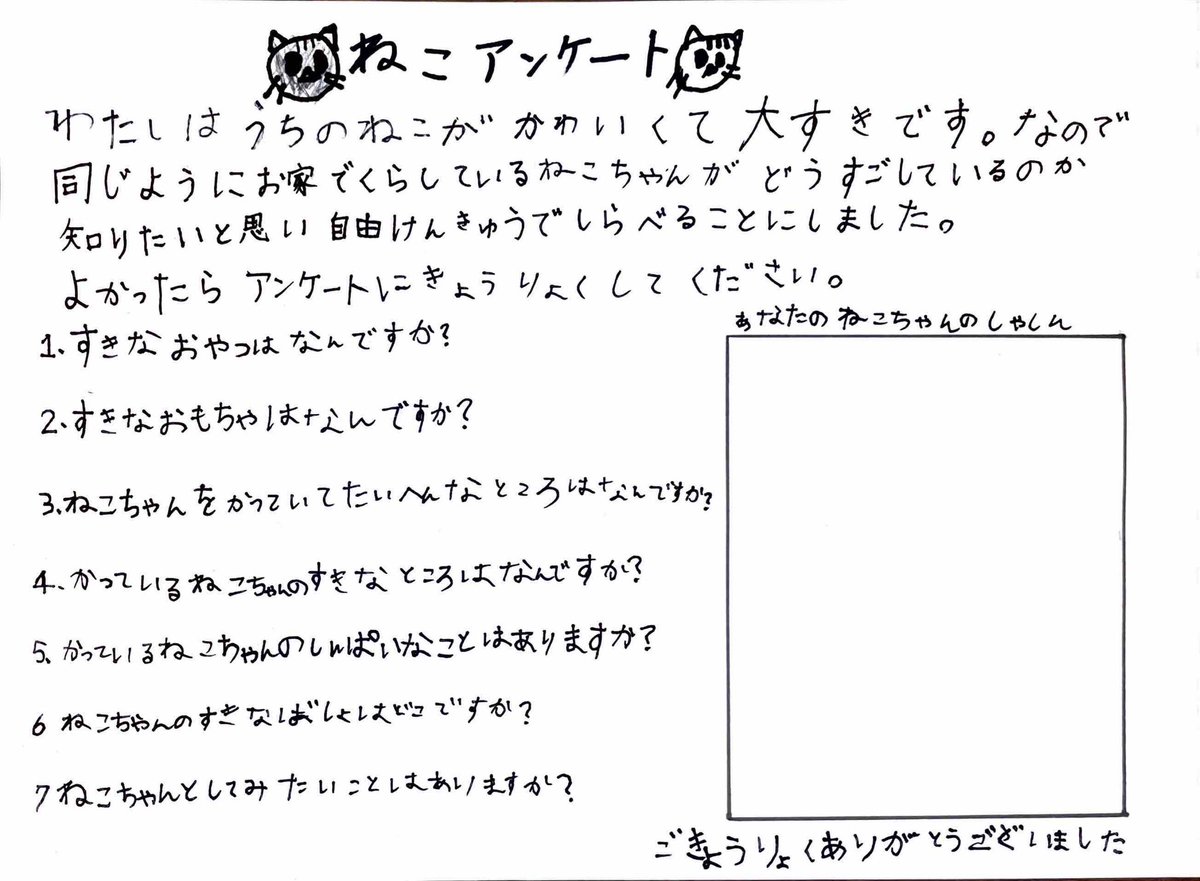 ねこアンケート
わたしはうちのねこがかわいくて大すきです。なので
同じようにお家でくらしているねこちゃんがどうすごしているのか
知りたいと思い自由けんきゅうでしらべることにしました。
よかったらアンケートにきょうりょくしてください。
1.すきなおやつはなんですか?
2.すきなおもちゃはなんですか?
3.ねこちゃんをかっていてたいへんなところはなんですか?
4.かっているねこちゃんのすきなところはなんですか?
5.かっているねこちゃんのしんぱいなことはありますか?
6 ねこちゃんのすきなばしょはどこですか?
7 ねこちゃんとしてみたいことはありますか?
あなたのねこちゃんのしゃしん
ごきょうりょくありがとうございました